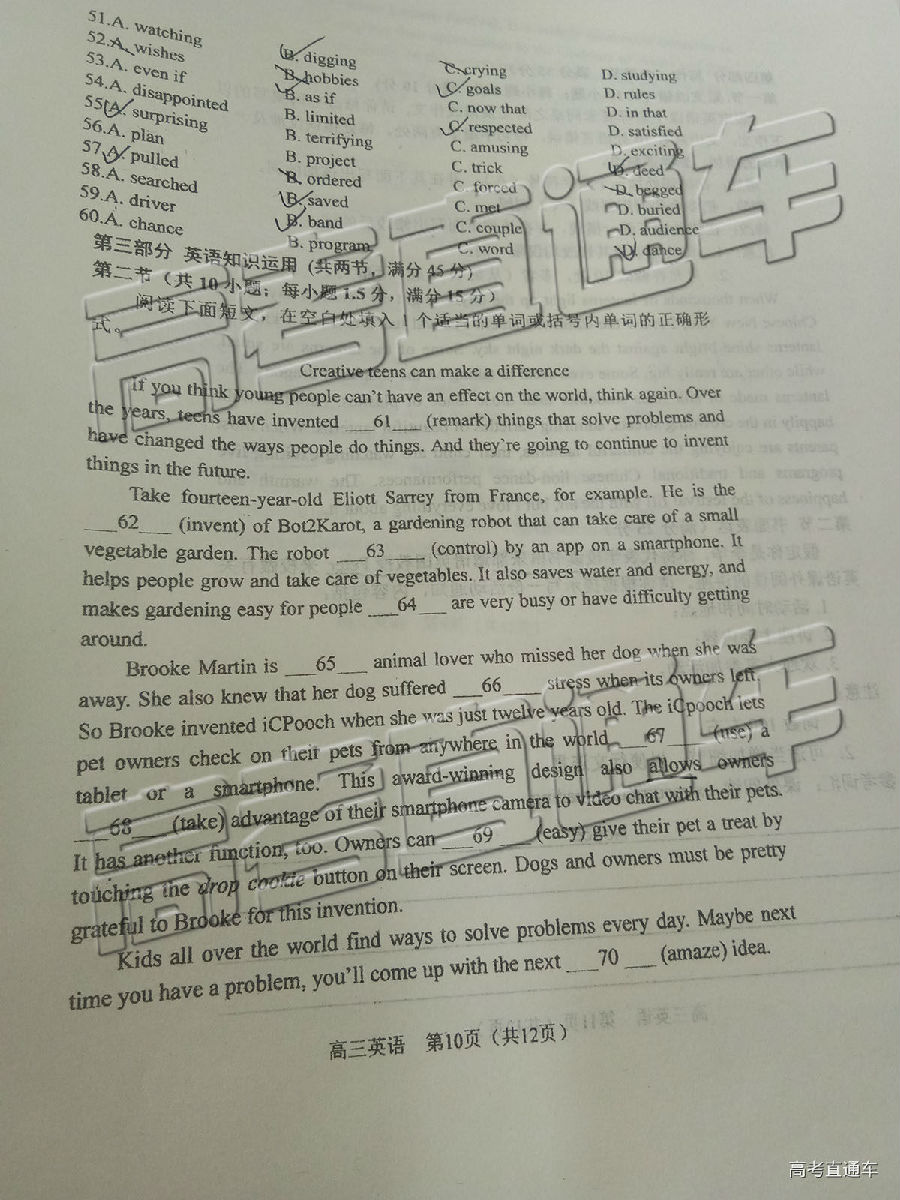 51.A. watching B. digging C. crying D. studying
52.A. wishes B. hobbies C. goals D. rules
53.A. even if B. as if C. now that D. in that
54.A. disappointed B. limited C. respected D. satisfied
55.A. surprising B. terrifying C. amusing D. exciting
56.A. plan B. project C. trick D. deed
57.A. pulled B. ordered C. forced D. begged
58.A. searched B. saved C. met D. buried
59.A. driver B. band C. couple D. audience
60.A. chance B. program C. word D. dance
第三部分 英语知识运用 (共两节,满分 45 分)
第二节 (共 10 小题; 每小题 1.5 分, 满分 15 分)
阅读下面短文,在空白处填入 1 个适当的单词或括号内单词的正确形
式。
Creative teens can make a difference
If you think young people can't have an effect on the world, think again. Over
the years, teens have invented ___61___ (remark) things that solve problems and
have changed the ways people do things. And they`re going to continue to invent
things in the future.
Take fourteen-year-old Eliott Sarrey from France, for example. He is the
___62___ (invent) of Bot2Karot, a gardening robot that can take care of a small
vegetable garden. The robot ___63___ (control) by an app on a smartphone. It
helps people grow and take care of vegetables. It also saves water and energy, and
makes gardening easy for people ___64___ are very busy or have difficulty getting
around.
Brooke Martin is ___65___ animal lover who missed her dog when she was
away. She also knew that her dog suffered ___66___ stress when its owners left.
So Brooke invented iCPooch when she was just twelve years old. The iCpooch lets
pet owners check on their pets from anywhere in the world ___67___ (use) a
tablet or a smartphone. This award-winning design also allows owners
___68___ (take) advantage of their smartphone camera to video chat with their pets.
It has another function, too. Owners can ___69___ (easy) give their pet a treat by
touching the drop cookie button on their screen. Dogs and owners must be pretty
grateful to Brooke for this invention.
Kids all over the world find ways to solve problems every day. Maybe next
time you have a problem, you'll come up with the next ___70___ (amaze) idea.
高三英语 第10页 (共12页)
高考直通车
高考直通车
高考直通车